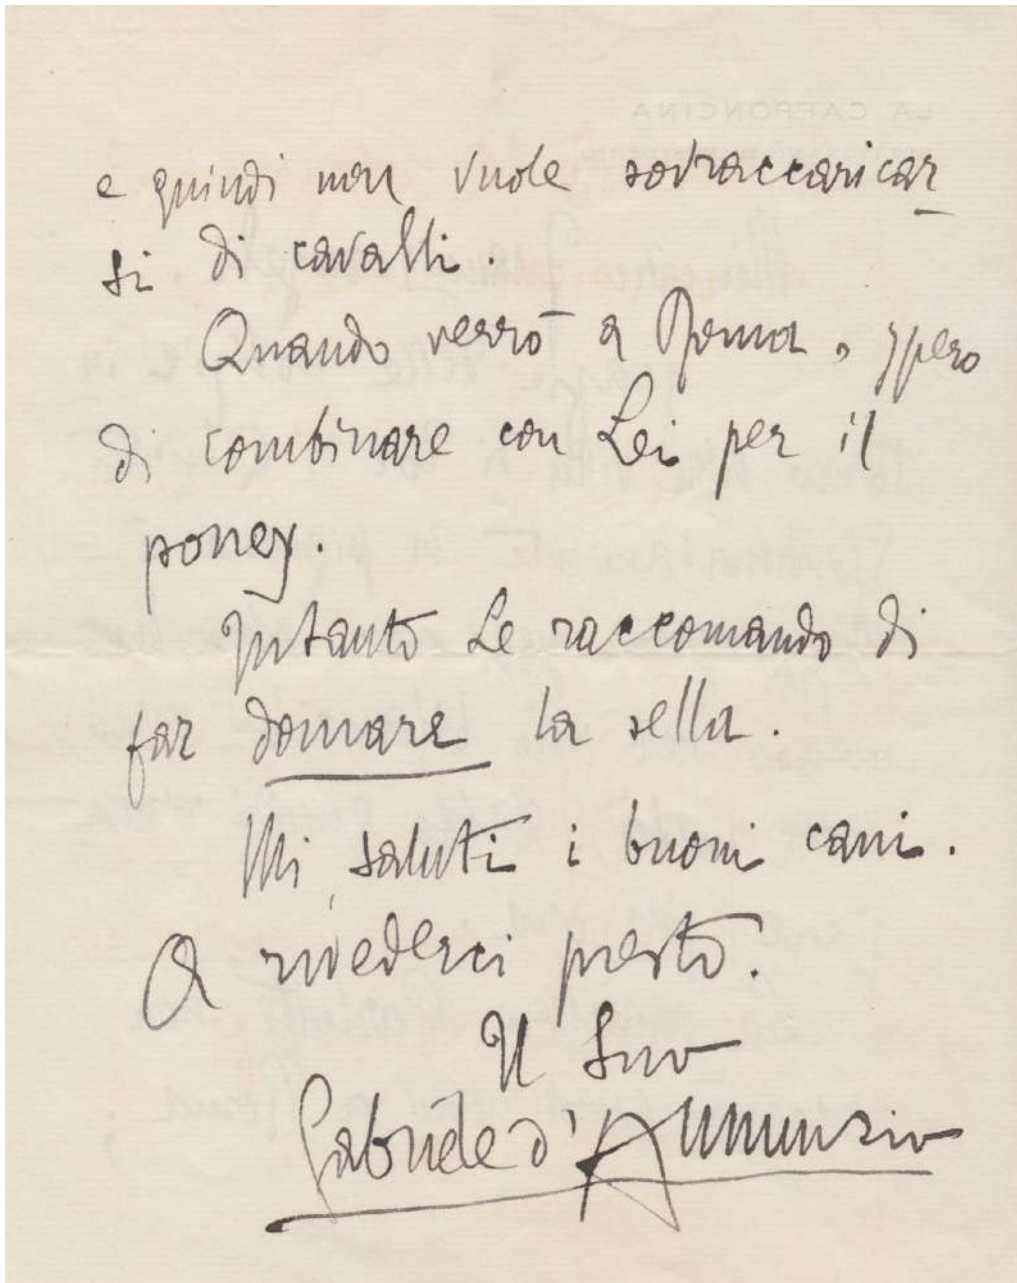 e quindi non vuole sovraccaricar-
si di cavalli.
Quando verrò a Roma, spero
di combinare con Lei per il
poney.
Intanto Le raccomando di
far domare la sella.
Mi saluti i buoni cani.
A rivederci presto.
Il Suo
Gabriele d'Annunzio